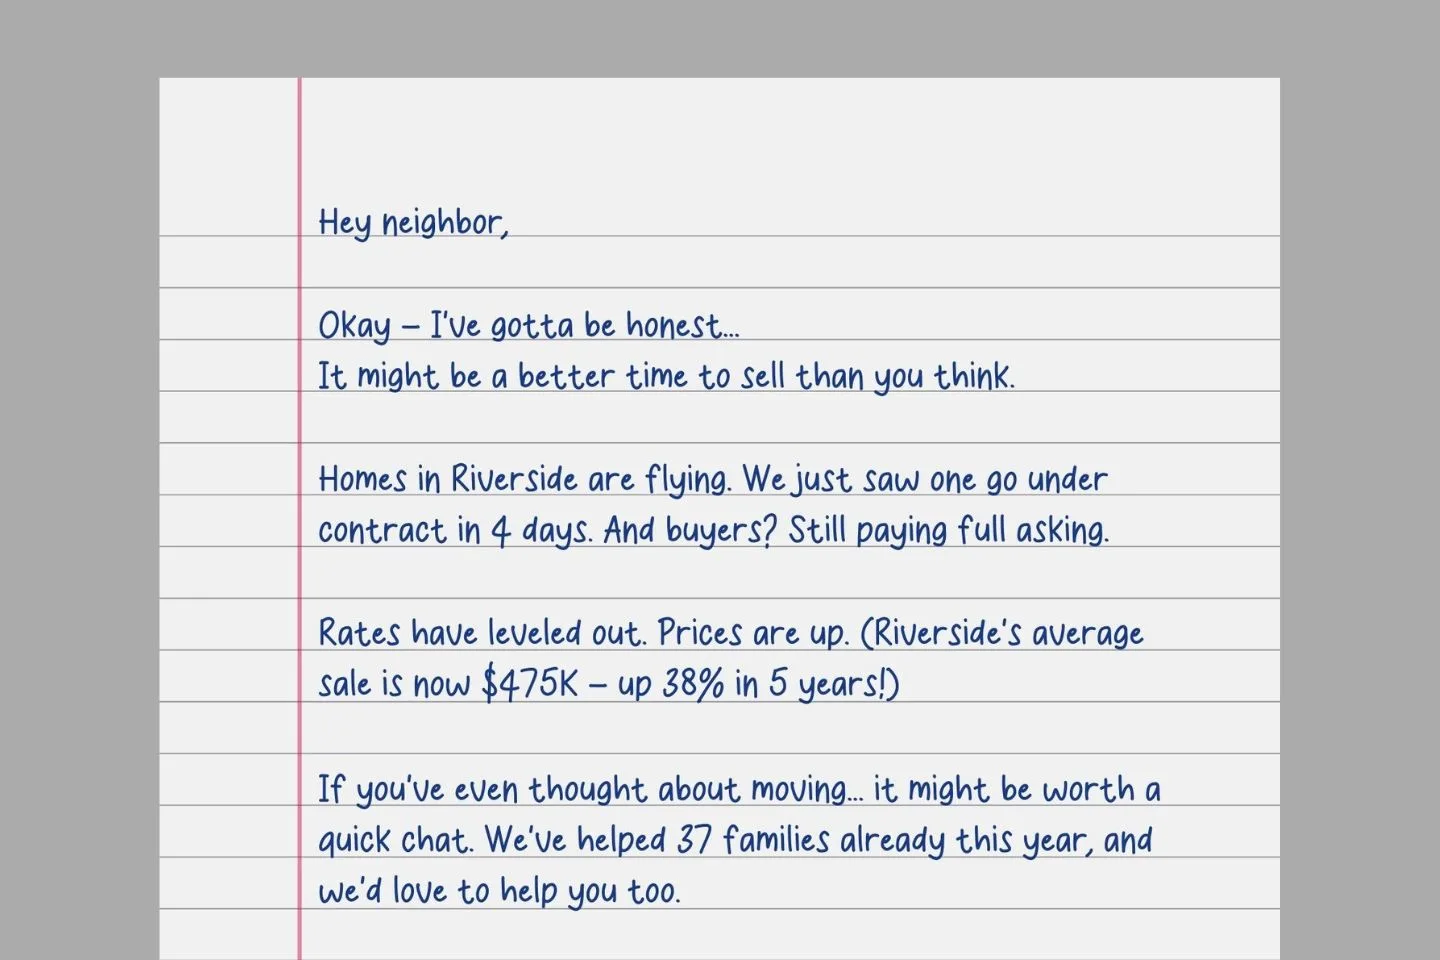 Hey neighbor,
Okay – I've gotta be honest...
It might be a better time to sell than you think.
Homes in Riverside are flying. We just saw one go under
contract in 4 days. And buyers? Still paying full asking.
Rates have leveled out. Prices are up. (Riverside's average
sale is now $475K – up 38% in 5 years!)
If you've even thought about moving... it might be worth a
quick chat. We've helped 37 families already this year, and
we'd love to help you too.